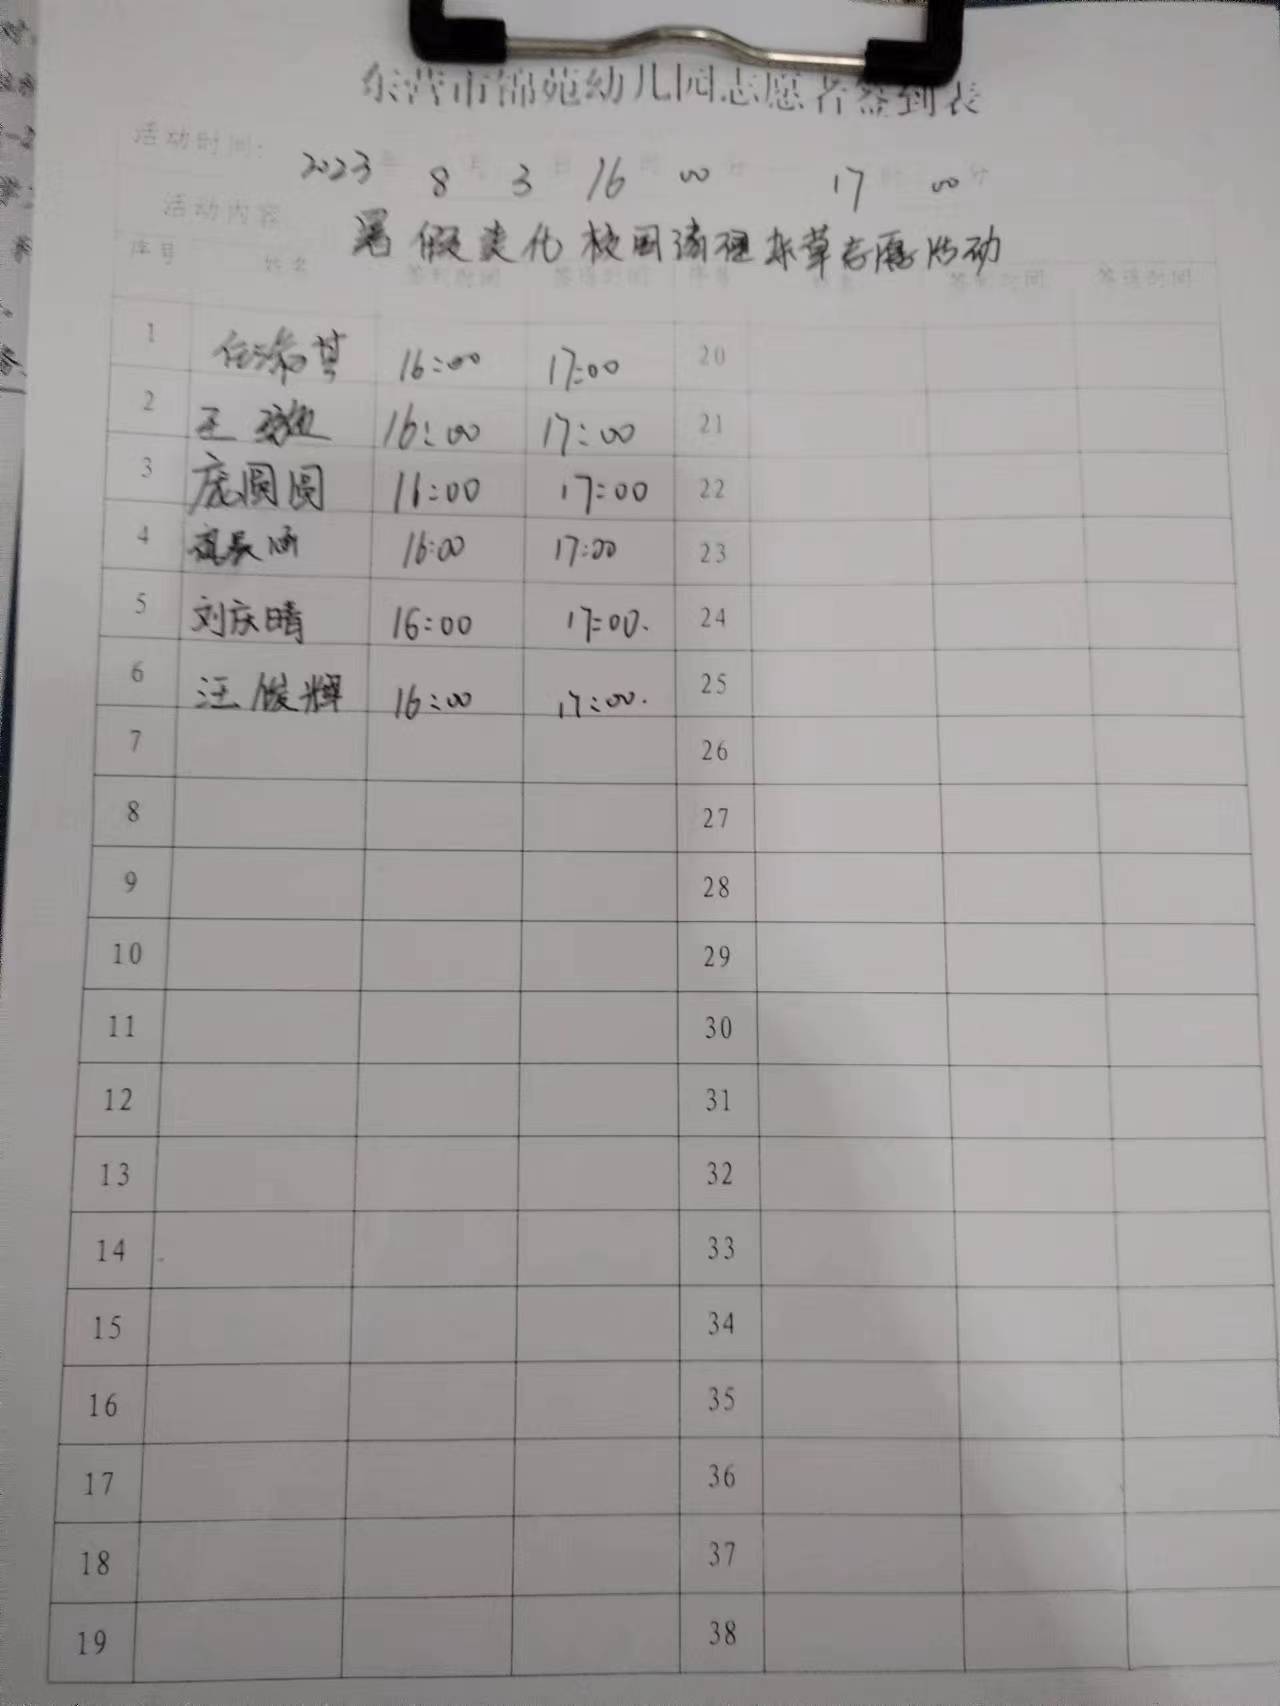 东营市锦苑幼儿园志愿者签到表
活动时间: 2023年 8月 3日 16时 00分 17时 00分
活动内容 暑假美化校园清理杂草志愿活动
序号 姓名 签到时间 签退时间 序号 姓名 签到时间 签退时间
1 16:00 17:00 20
2 王 16:00 17:00 21
3 庞圆圆 16:00 17:00 22
4 16:00 17:00 23
5 刘庆晴 16:00 17:00. 24
6 汪俊辉 16:00 17:00. 25
7 26
8 27
9 28
10 29
11 30
12 31
13 32
14 33
15 34
16 35
17 36
18 37
19 38